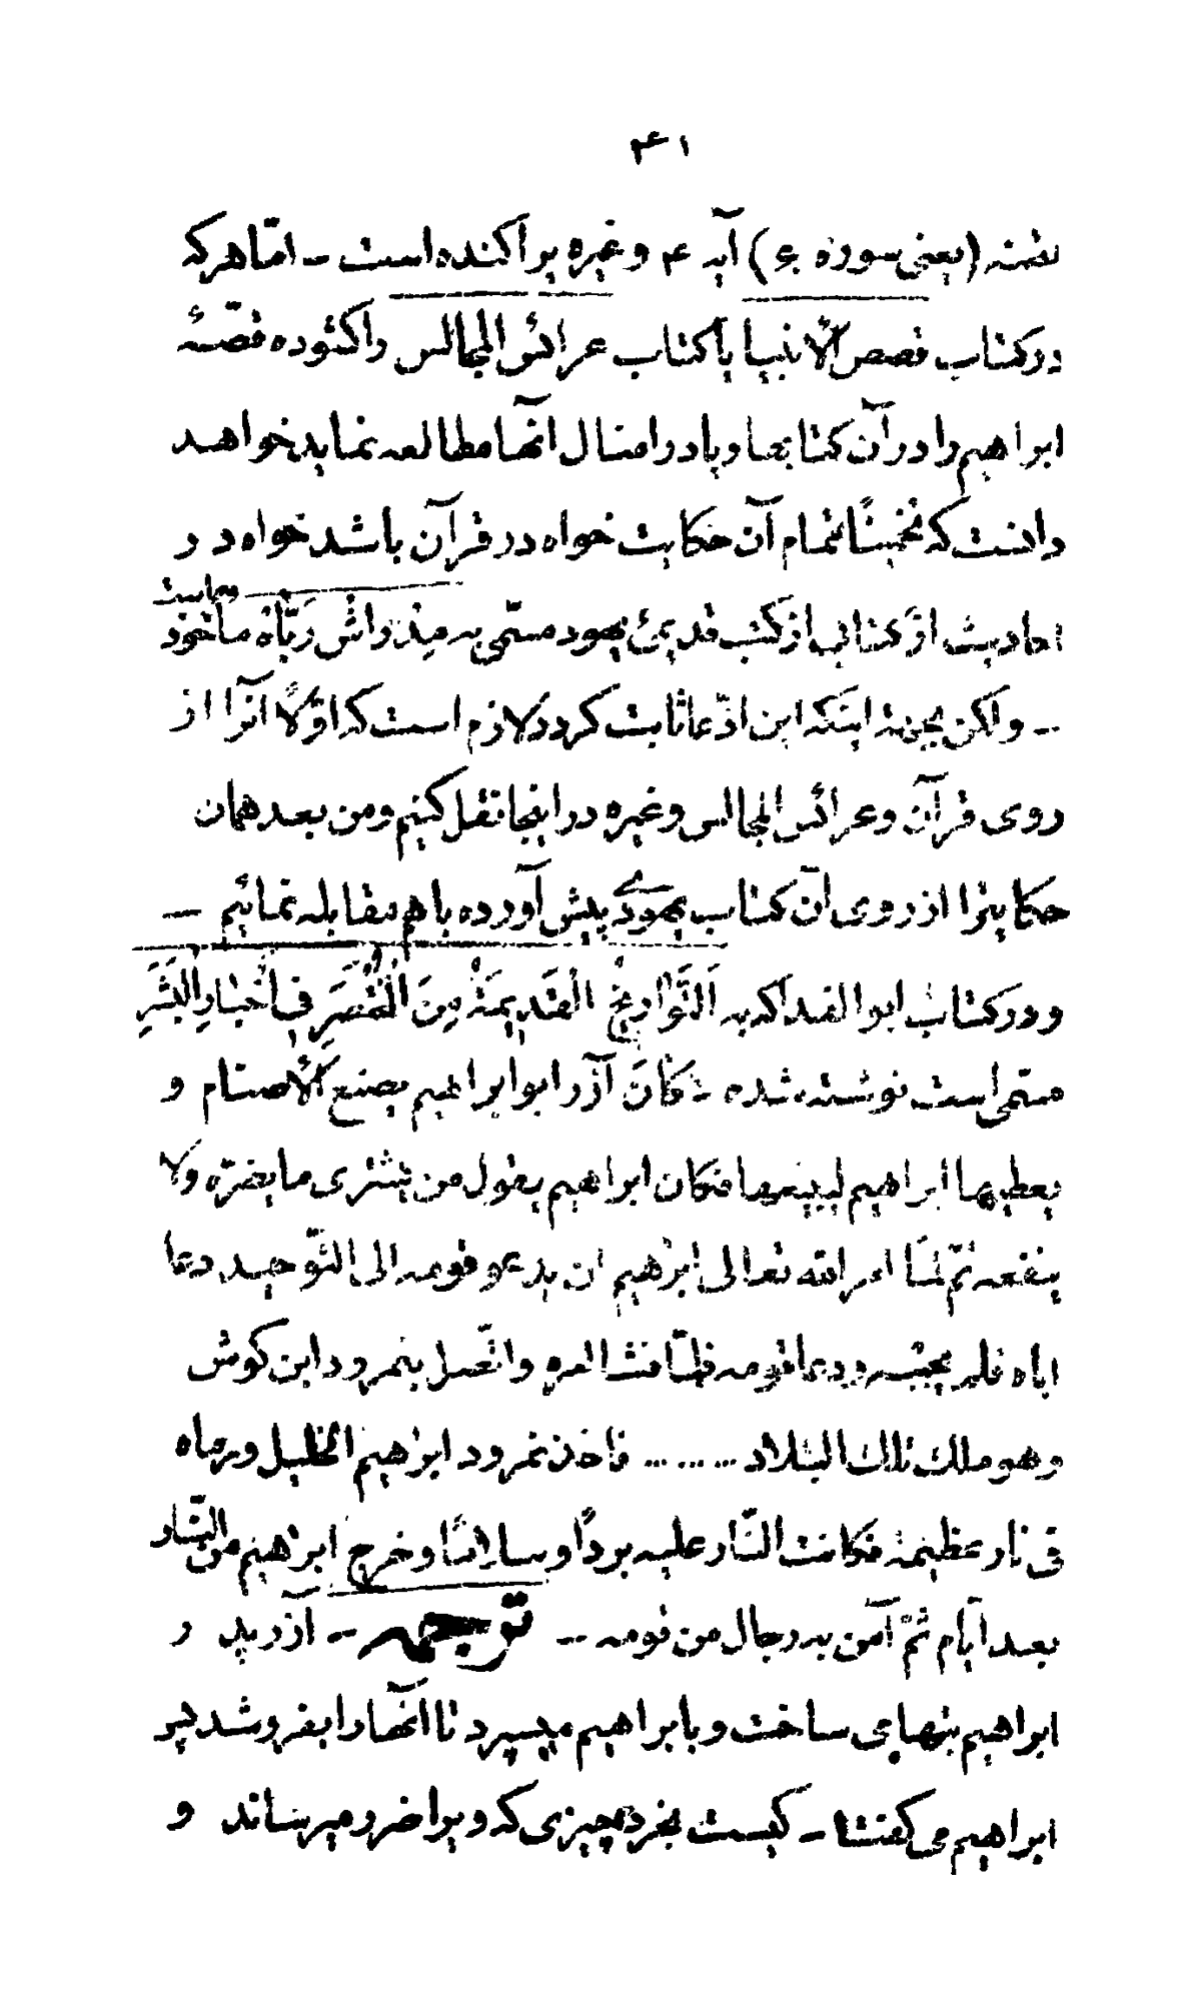 ۴۱
ممتحنه (یعنی سوره ۶۰) آیه ۴ وغیره پراکنده است - امّا هرکه
در کتاب قصص الأنبیا یا کتاب عرائس المجالس را کشوده قصّهٔ
ابراهیم را در آن کتابها و یا در امثال آنها مطالعه نماید خواهد
دانست که تخمیناً تمام آن حکایت خواه در قرآن باشد خواه در
احادیث از کتابی از کتب قدیمیٔ یهود مسمّی به میذراش رَبّاه مأخوذ میباشد
- ولکن بجهة اینکه این ادّعا ثابت کردد لازم است که اوّلاً آنرا از
روی قرآن وعرائس المجالس وغیره در اینجا نقل کنیم ومن بعد همان
حکایترا از روی آن کتاب یهودی پیش آورده باهم مقابله نمائیم -
و در کتاب ابو الفدا که به اَلتَّوَارِیخُ القَدِیمَةُ مِنَ الْمُخْتَصَرِ فِی أَخْبَارِ الْبَشَرِ
مسمّی است نوشته شده - کَانَ آزر ابو ابراهیم یصنع الأصنام و
یعطیها ابراهیم لیبیعها فکان ابراهیم یقول من یشتری ما یضرّه ولا
ینفعه ثمّ لمّا امر الله تعالی ابرٰهیم ان یدعو قومه الی التّوحید دعا
اباه فلم یجبه ودعا قومه فلمّا فشا امره واتّصل بنمرود ابن کوش
وهو ملك تلك البلاد ... ... فاخذ نمرود ابرٰهیم الخلیل ورماه
فی نار عظیمة فکانت النّار علیه برداً وسلاماً وخرج ابرٰهیم من النّار
بعد ایّام ثمّ آمن به رجال من قومه - ترجمه - آزر پدر
ابراهیم بتها می ساخت و با ابراهیم میسپرد تا آنها را بفروشد پس
ابراهیم می کفت - کیست بخرد چیزی که ویرا ضرر میرساند و